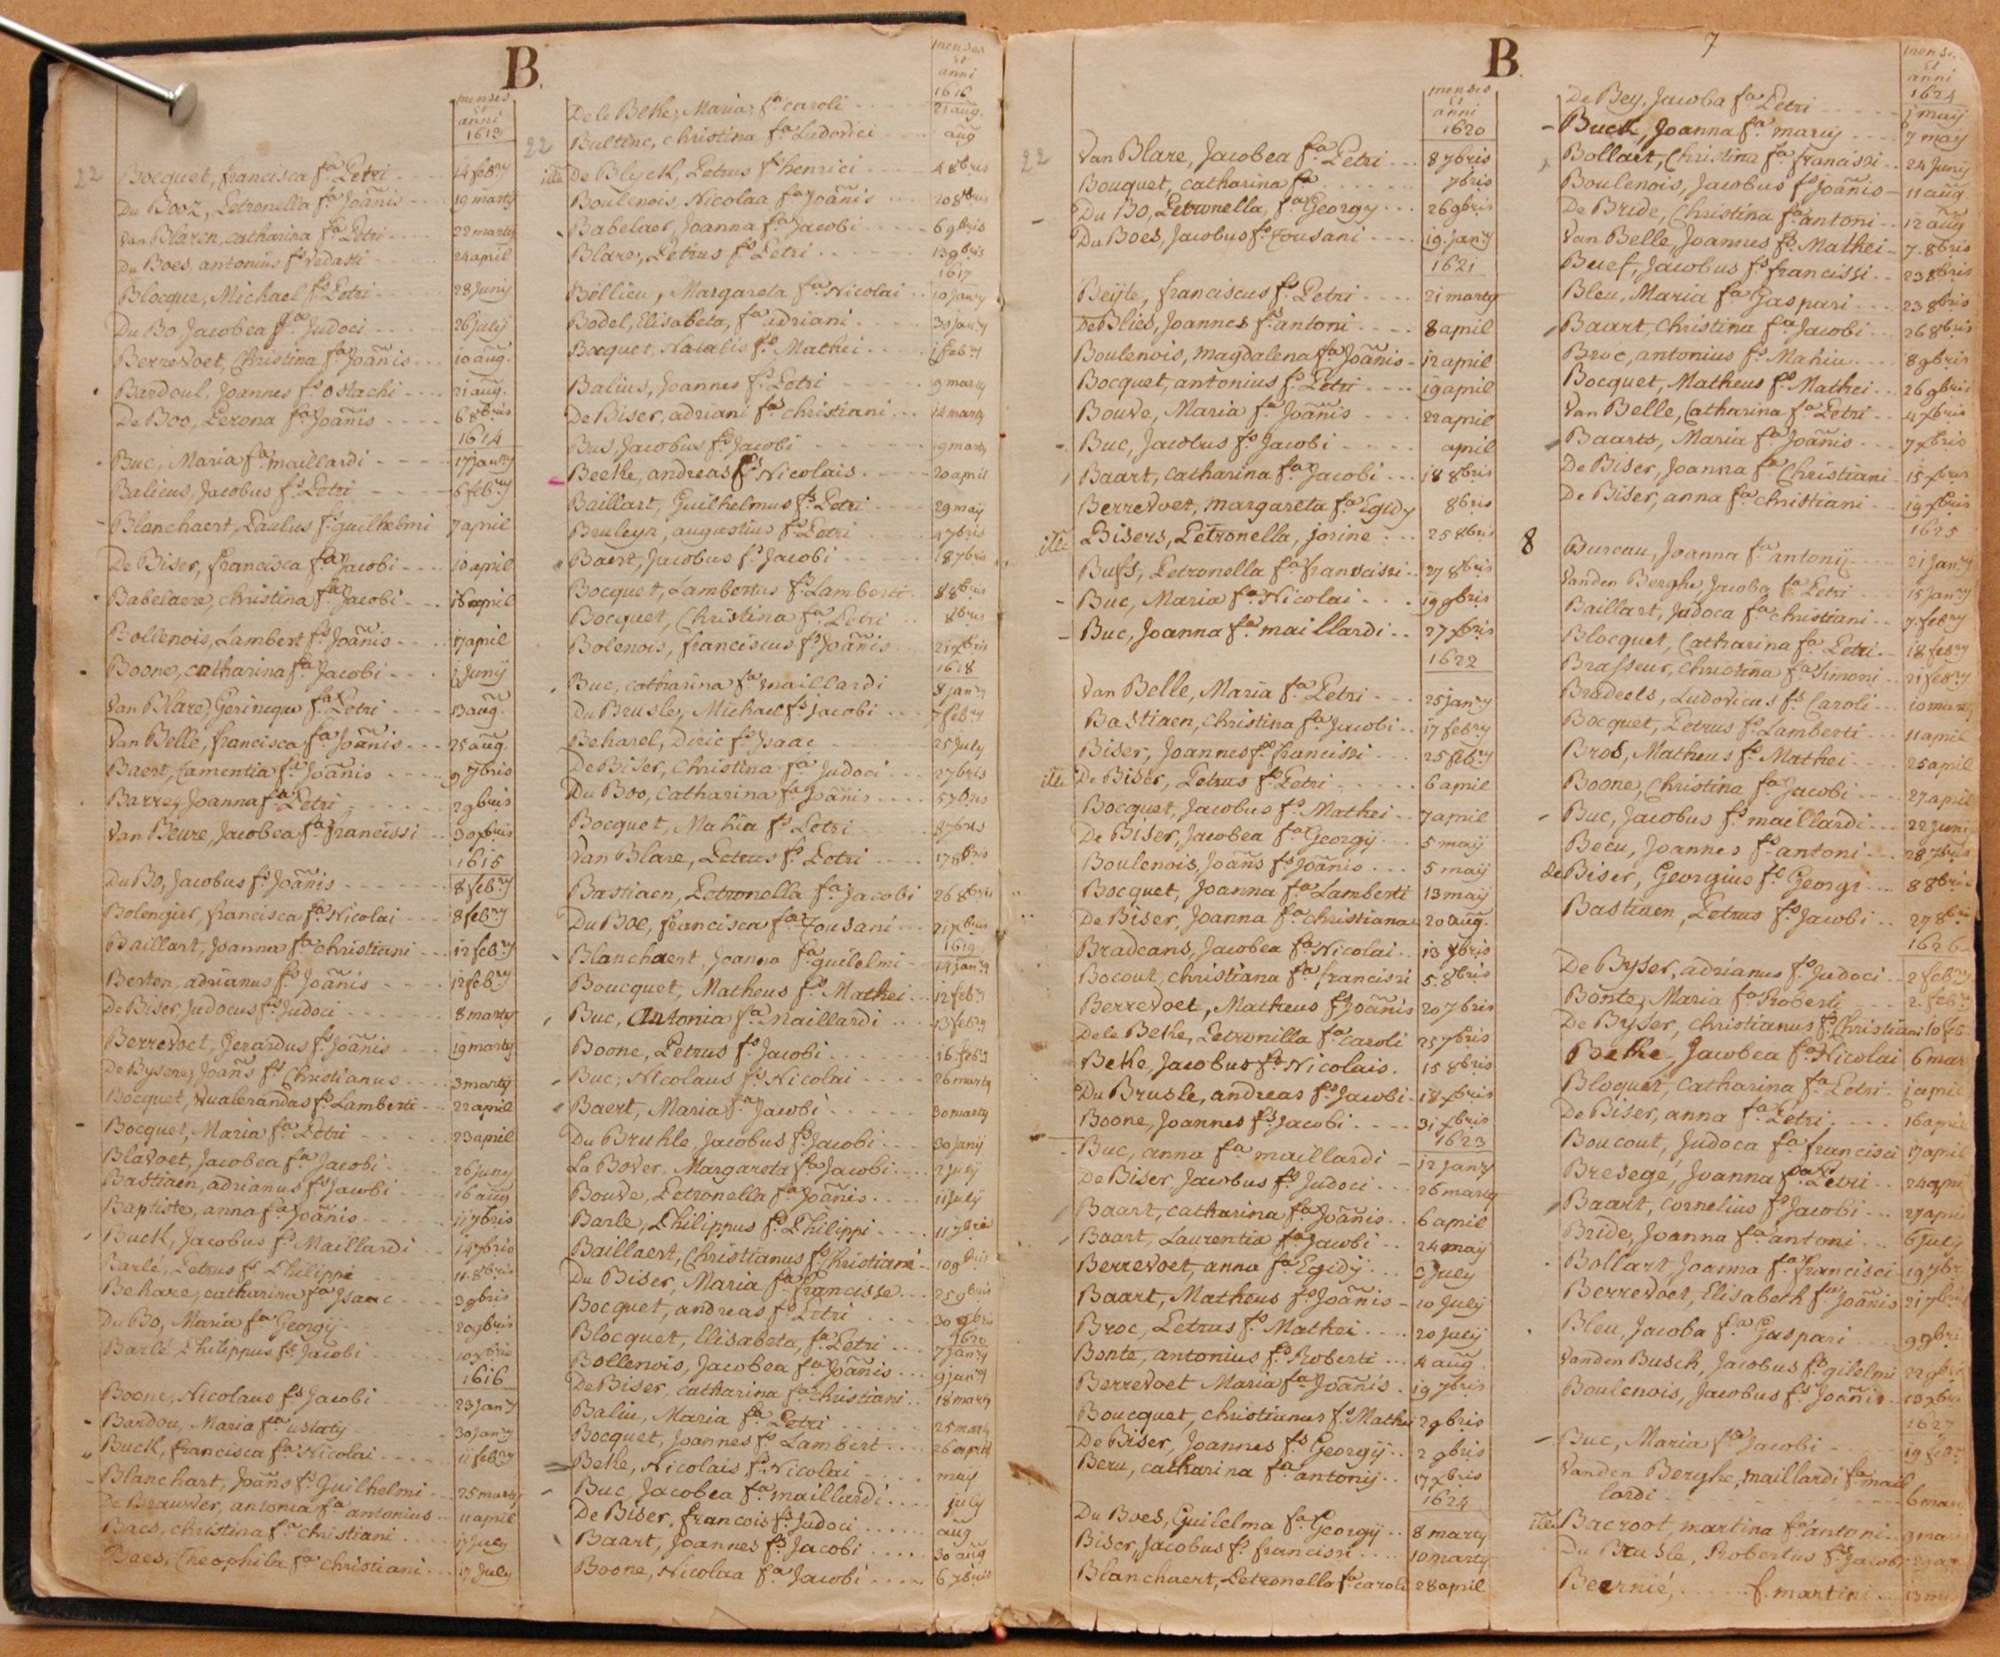 B.
menses
et
anni
1613
22 Bocquet, francisca fa Petri 14 febry
Du Booz, Petronella fa Joãnis 19 marty
van Blaren, catharina fa Petri 22 marty
Du Boes antonius fs Vedasti 24 april
Blocque, Michael fs Petri 28 Juny
Du Bo Jacobea fa Judoci 26 july
Berrevoet, Christina fa Joãnis 10 aug.
Bardoul, Joannes fs Ostachi 21 aug.
De Boo, Perona fa Joãnis 6 8bris
1614
Buc, Maria fa maillardi 17 janry
Balicus, Jacobus fs Petri 6 febry
Blanchaert, Paulus fs guilhelmi 7 april
De Biser, francisca fa Jacobi 10 april
Babelaere, christina fa Jacobi 16 april
Bollenois, Lambert fs Joãnis 17 april
Boone, catharina fa Jacobi j Junij
van Blare, Gerincque fa Petri 13 aug.
van Belle, francisca fa Joãnis 25 aug.
Baert, Lamentia fa Joãnis 9 7bris
Barre, Joanna fa Petri 2 9bris
van Beure, Jacobea fa francissi 30 xbris
1615
Du Bo, Jacobus fs Joãnis 8 febry
Bolengier, francisca fa Nicolai 8 febry
Baillart, Joanna fa christiani 12 febry
Berton, adrianus fs Joãnis 12 febry
De Biser Judocus fs Judoci 8 marty
Berrevoet, Gerardus fs Joãnis 19 marty
De Bysere, Joañs fs Christianus 3 marty
Bocquet, Vualerandas fs Lamberti 22 april
Bocquet, Maria fa Petri 23 april
Blavoet, Jacobea fa Jacobi 26 Juny
Bastiaen, adrianus fs Jacobi 16 aug
Baptiste, anna fa Joãnis 11 7bris
Buck, Jacobus fs Maillardi 14 7bris
Barle, Petrus fs Philippi 11 8bris
Behare, catharina fa Isaac 3 9bris
Du Bo, Maria fa Georgy 20 9bris
Barlé Philippus fs Jacobi 10 xbris
1616
Boone, Nicolaus fs Jacobi 23 janry
Bardou, Maria fa ustaty 30 janry
Buck, francisca fa Nicolai 11 febry
Blanchart, Joañs fs Guilhelmi 25 marty
De Brauwer, antonia fa antonius 11 april
Baes, christina fa christiani 17 july
Baes, Theophila fa christiani 17 July
menses
et
anni
1616
De le Beke, Maria, fa caroli 21 aug.
22 Bultinc, christina fa Ludovici aug
De Blyck, Petrus fs henrici 4 8bris
Boulinois, Nicolaa fa Joãnis 20 8bris
Babelaer, Joanna fa Jacobi 6 9bris
Blare, Petrus fs Petri 13 9bris
1617
Bellieu, Margareta fa Nicolai 10 janry
Bodel, Elisabeta, fa adriani 30 janry
Bocquet, Natalis fs Mathei j febry
Balius, Joannes fs Petri 9 marty
De Biser, adriani fa christiani 14 marty
Bus Jacobus fs Jacobi 19 marty
Beeke, andreas fs Nicolais 20 april
Baillart, Guilhelmus fs Petri 29 maij
Beuleyn, augustius fs Petri 4 7bris
Baert, Jacobus fs Jacobi 18 7bris
Bocquet, Lambertus fs Lamberti 8 8bris
Bocquet, Christina fa Petri 8bris
Bolenois, franciscus fs Joãnis 21 xbris
1618
Buc, catharina fa maillardi 8 janry
Du Brusle, Michael fs Jacobi 7 febry
Beharel, Diric fs Isaac 25 July
De Biser, Christina fa Judoci 2 7bris
Du Boo, catharina fa Joãnis 5 7bris
Bocquet, Mahia fs Petri 8 7bris
Van Blare, Petrus fs Petri 17 8bris
Bastiaen, Petronella fa Jacobi 26 8bris
Du Boe, francisca fa Tousani 21 xbris
1619
Blanchaert, Joanna fa guilelmi 14 janry
Boucquet, Matheus fs Mathei 12 febry
Buc, Antonia fa Maillardi 13 febry
Boone, Petrus fs Jacobi 16 febry
Buc, Nicolaus fs Nicolai 26 marty
Baert, Maria fa Jacobi 30 marty
Du Bruhle, Jacobus fs Jacobi 30 janij
La Bover, Margareta fa Jacobi 2 july
Bouve, Petronella fa Joãnis 11 july
Barle, Philippus fs Philippi 11 7bris
Baillaert, Christianus fs Christiani 10 9bris
Du Biser, Maria fa francisse 25 9bris
Bocquet, andreas fs Petri 30 9bris
1620
Blocquet, Elisabeta, fa Petri 7 janry
Bollenois, Jacobea fa Joãnis 9 janry
De Biser, catharina fa christiani 18 marty
Baliu, Maria fa Petri 25 marty
Bocquet, Joannes fs Lambert 26 april
Beke, Nicolais fs Nicolai maij
Buc, Jacobea fa maillardi july
De Biser, francois fs Judoci aug
Baart, Joannes fs Jacobi 30 aug
Boone, Nicolaa fa Jacobi 6 7bris
B.
menses
et
anni
1620
22 Van Blare, Jacobea fa Petri 8 7bris
Bouquet, catharina fa 7bris
Du Bo, Petronella, fa Georgy 26 9bris
Du Boes, Jacobus fs Tousani 19 janry
1621
Beyle, franciscus fs Petri 21 marty
De Blies, Joannes fs antoni 8 april
Boulenois, magdalena fa Joãnis 12 april
Bocquet, antonius fs Petri 19 april
Bouve, Maria fa Joãnis 22 april
Buc, Jacobus fs Jacobi april
Baart, catharina fa Jacobi 18 8bris
Berrevoet, margareta fa Egidy 8bris
Bisers, Petronella, jorine 25 8bris
Bufs, Petronella fa francissi 27 8bris
Buc, Maria fa Nicolai 19 9bris
Buc, Joanna fa maillardi 27 xbris
1622
Van Belle, Maria fa Petri 25 janry
Bastiaen, christina fa Jacobi 17 febry
Biser, Joannes fs francissi 25 febry
De Biser, Petrus fs Petri 6 april
Bocquet, Jacobus fs Mathei 7 april
De Biser, Jacobea fa Georgy 5 maij
Boulenois, Joañs fs Joãnis 5 maij
Bocquet, Joanna fa Lamberti 13 maij
De Biser, Joanna fa christianus 20 aug.
Bradeans, Jacobea fa Nicolai 13 7bris
Bocout, christiana fa francissi 5. 8bris
Berrevoet, Matheus fs Joãnis 20 7bris
De le Beke, Petronilla fa caroli 25 7bris
Beke, Jacobus fs Nicolais. 15 8bris
Du Brusle, andreas fs Jacobi 18 xbris
Boone, Joannes fs Jacobi 31 xbris
1623
Buc, anna fa maillardi 12 janry
De Biser, Jacobus fs Judoci 26 marty
Baart, catharina fa Joãnis 6 april
Baart, Laurentia fa Jacobi 24 maij
Berrevoet, anna fa Egidÿ 9 July
Baart, Matheus fs Joãnis 10 July
Broc, Petrus fs Mathei 20 july
Bonte, antonius fs Roberti 4 aug
Berrevoet Maria fa Joãnis 19 7bris
Boucquet, christianus fs Mathei 2 9bris
De Biser, Joannes fs Georgij 2 9bris
Beru, catharina fa antonij 17 xbris
1624
Du Boes, Guilelma fa Georgy 8 marty
Biser, Jacobus fs francissi 10 marty
Blanchaert, Petronella fa caroli 28 april
7
menses
et
anni
1624
De Bey, Jacoba fa Petri j maij
Buck, Joanna fa mariy 7 maij
Bollart, Christina fa francissi 24 Junij
Boulenois, Jacobus fs Joãnis 11 aug
De Bride, Christina fa antoni 12 aug
Van Belle, Joannes fs Mathei 7. 8bris
Buef, Jacobus fs francissi 23 8bris
Bleu, Maria fa Gaspari 23 8bris
Baart, Christina fa Jacobi 26 8bris
Broc, antonius fs Mahiu 8 9bris
Bocquet, Matheus fs Mathei 26 9bris
Van Belle, Catharina fa Petri 4 xbris
Baarts, Maria fa Joãnis 7 xbris
De Biser, Joanna fa Christiani 15 xbris
De Biser, anna fa christiani 19 xbris
1625
8 Bureau, Joanna fa antonij 21 janry
Vanden Berghe Jacoba fa Petri 15 janry
Baillart, Judoca fa christiani 7. febry
Blocquet, Catharina fa Petri 18 febry
Brasseur, christina fa Simoni 21 febry
Bradeels, Ludovicus fs Caroli 10 marty
Bocquet, Petrus fs Lamberti 11 april
Bros, Matheus fs Mathei 25 april
Boone, Christina fa Jacobi 27 april
Buc, Jacobus fs maillardi 22 Junij
Becu, Joannes fs antoni 28 7bris
de Biser, Georgius fs Georgi 8 8bris
Bastiaen, Petrus fs Jacobi 27 8bris
1626
De Byser, adrianus fs Judoci 2 febry
Bonte, Maria fa Roberti 2. febry
De Byser, christianus fs Christiani 10 feb
Beke, Jacobea fa Nicolai 6 mar
Bloquet, catharina fa Petri j april
De Biser, anna fa Petri 16 april
Boucout, Judoca fa francisci 17 april
Bresegé, Joanna fa Petri 24 apri
Baart, Cornelius fs Jacobi 27 apri
Bride, Joanna fa antoni 6 july
Bollart Joanna fa francisci 19 7br
Berrevoet, Elisabeth fa Joãnis 21 7bris
Bleu, Jacoba fa Gaspari 9 9bri
Vanden Busch, Jacobus fs gilelmi 22 9bris
Boulenois, Jacobus fs Joãnis 10 xbri
1627
Buc, Maria fa Jacobi 19 febr
Vanden Berghe, maillardi fa mail
lardi 6 mar
Bacroot, martina fa antoni 9 mar
Du Brusle, Robertus fs Jacobi
Beernié, f. martini